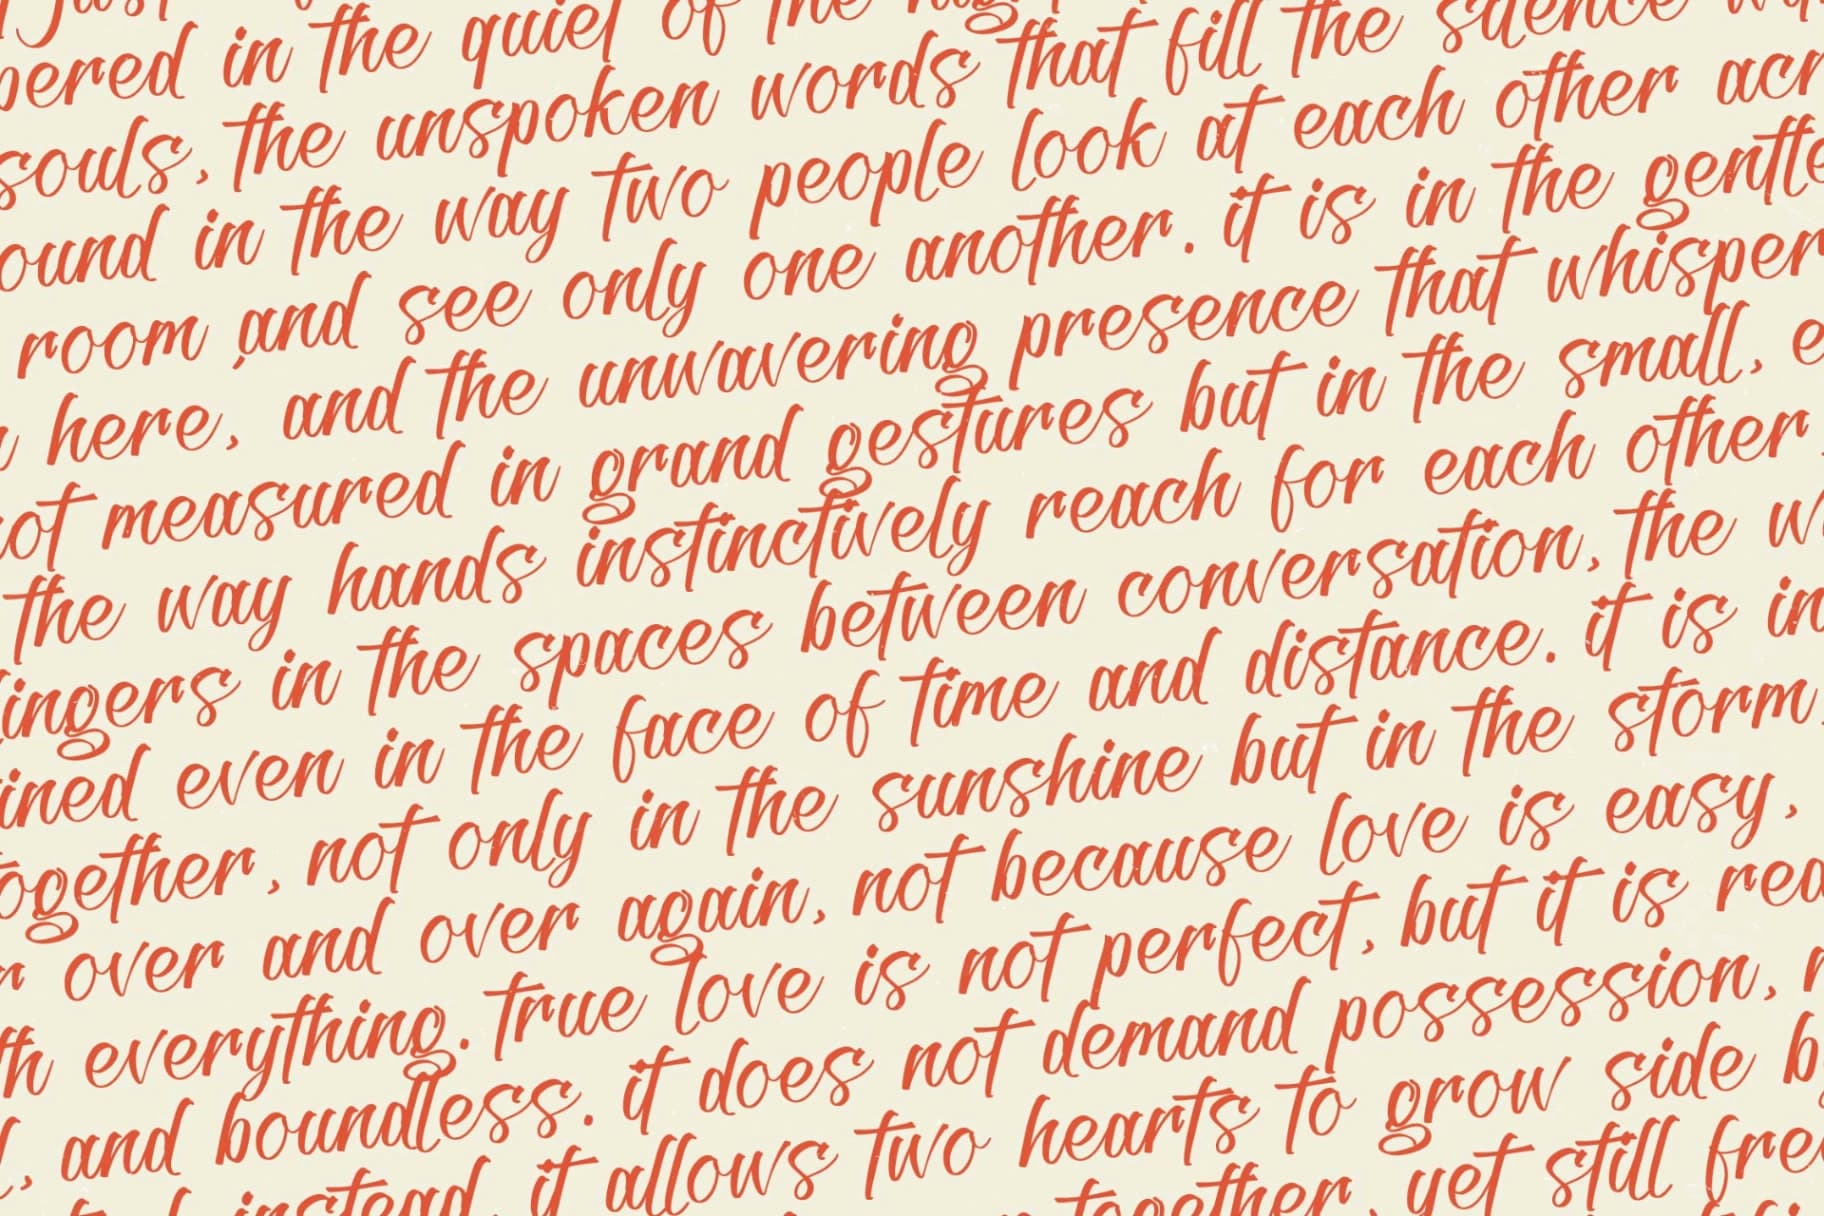 just
pered in the quiet of the nig
souls, the unspoken words that fill the silence
ound in the way two people look at each other acr
room ,and see only one another. it is in the gentle
here, and the unwavering presence that whisper
ot measured in grand gestures but in the small, e
the way hands instinctively reach for each other,
ingers in the spaces between conversation, the w
ined even in the face of time and distance. it is in
ogether, not only in the sunshine but in the storm,
r over and over again, not because love is easy,
th everything. true love is not perfect, but it is rea
, and boundless. it does not demand possession,
instead, it allows two hearts to grow side b
together, yet still free